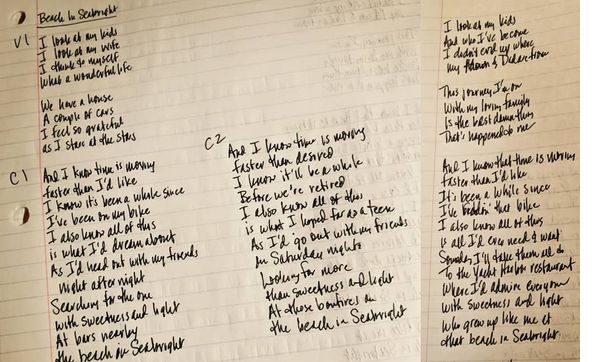 Beach in Seabright
V1
I look at my kids
I look at my wife
I think to myself
What a wonderful life
We have a house
A couple of cars
I feel so grateful
as I stare at the stars
C1
And I know time is moving
faster than I'd like
I know it's been a while since
I've been on my bike
I also know all of this
is what I'd dream about
As I'd head out with my friends
night after night
Searching for the one
with sweetness and light
At bars nearby
the beach in Seabright
C2
And I know time is moving
faster than desired
I know it'll be a while
Before we're retired
I also know all of this
is what I hoped for as a teen
As I'd go out with my friends
on Saturday nights
Looking for more
than sweetness and light
At those bonfires on
the beach in Seabright
I look at my kids
And who I've become
I didn't end up where
my
This journey I'm on
With my loving family
Is the best damn thing
That's happened to me
And I know that time is moving
faster than I'd like
It's been a while since
I've that bike
I also know all of this
is all I'd ever need & want
Someday I'll take them all
To the Yacht Harbor restaurant
Where I'd admire everyone
with sweetness and light
Who grew up like me at
that beach in Seabright